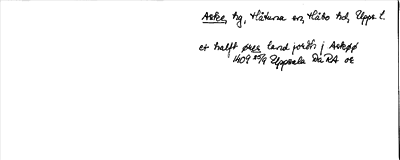 Aske, hg, Håtuna sn, Håbo hd, Upps. l.
et halft øres land jordh j Askøø
1409 25/9 Uppsala DaRA or